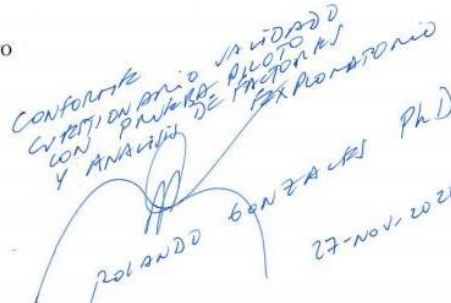 ro
CONFORME
CUESTIONARIO VALIDADO
CON PRUEBA PILOTO
Y ANALISIS DE FACTORES
EXPLORATORIO
ROLANDO GONZALES Ph.D
27-NOV-202